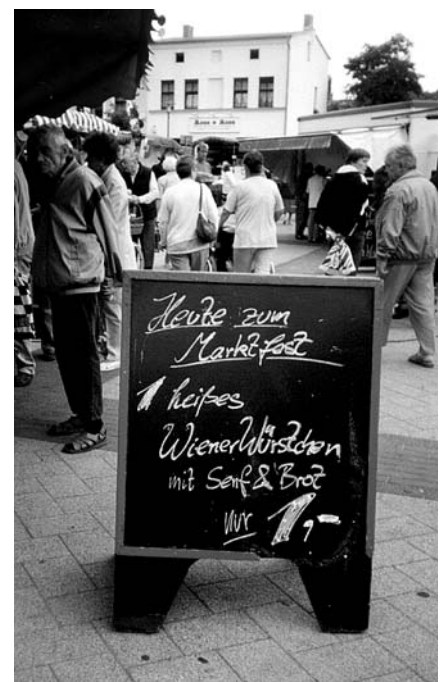 Heute zum
Marktfest
1 heißes
Wiener Würstchen
mit Senf & Brot
nur 1,-